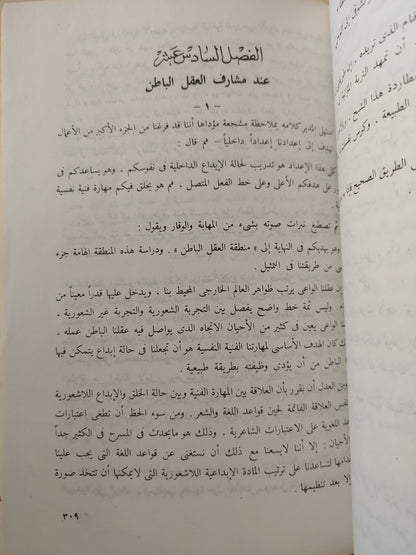 الفصل السادس عشر
عند مشارف العقل الباطن
— ١ —
استهل المدير كلامه بملاحظة مشجعة مؤداها أننا قد فرغنا من الجزء الأكبر من الأعمال
تهدف إلى إعدادنا إعداداً داخلياً – ثم قال :
كل هذا الإعداد هو تدريب لحالة الإبداع الداخلية فى نفوسكم . وهو يساعدكم فى
على هدفكم الأعلى وعلى خط الفعل المتصل . ثم هو يخلق فيكم مهارة فنية نفسية
ثم تصطبغ نبرات صوته بشىء من المهابة والوقار ويقول :
وهو يهديكم فى النهاية إلى « منطقة العقل الباطن » . ودراسة هذه المنطقة الهامة جزء
من طريقتنا فى التمثيل .
إن عقلنا الواعى يرتب ظواهر العالم الخارجى المحيط بنا ، ويدخل عليها قدراً معيناً من
. وليس ثمة خط واضح يفصل بين التجربة الشعورية والتجربة غير الشعورية .
الواعى يعين فى كثير من الأحيان الاتجاه الذى يواصل فيه عقلنا الباطن عمله .
كان الهدف الأساسى لمهارتنا الفنية النفسية هو أن تجعلنا فى حالة إبداع يتمكن فيها
الباطن من أن يؤدى وظيفته بطريقة طبيعية .
ومن العدل أن نقرر بأن العلاقة بين المهارة الفنية وبين حالة الخلق والإبداع اللاشعورية
نفس العلاقة القائمة بين قواعد اللغة والشعر . ومن سوء الحظ أن تطغى اعتبارات
اللغوية على الاعتبارات الشاعرية . وذلك هو مايحدث فى المسرح فى الكثير جداً
الأحيان : إلا أننا لايسعنا مع ذلك أن نستغنى عن قواعد اللغة التى يجب علينا
لتساعدنا على ترتيب المادة الإبداعية اللاشعورية التى لايمكنها أن تتخذ صورة
إلا بعد تنظيمها
٣٠٩
الذى تريده .
أن تمهد التربة
مطاردة هذا الشبح .
الطبيعة . وكرس
الطريق الصحيح